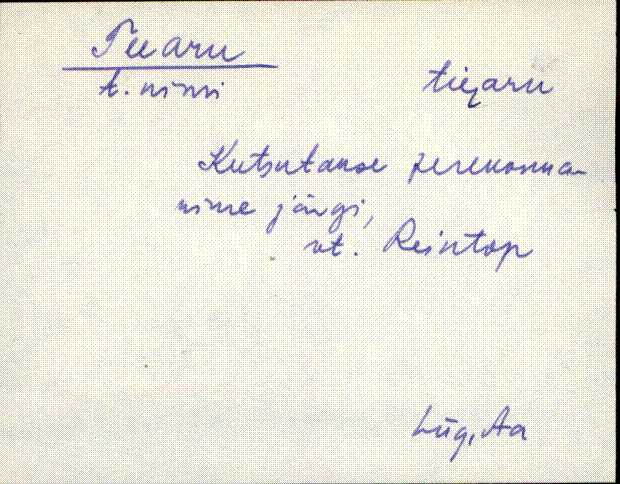 Teearu
t. nimi
tieᴉaru
Kutsutakse perekonna-
nime järgi,
vt. Reintop
Lüg, Aa